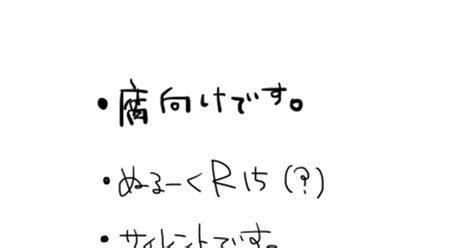 ・腐向けです。
・ぬるーくR15(?)
・サイレントです。